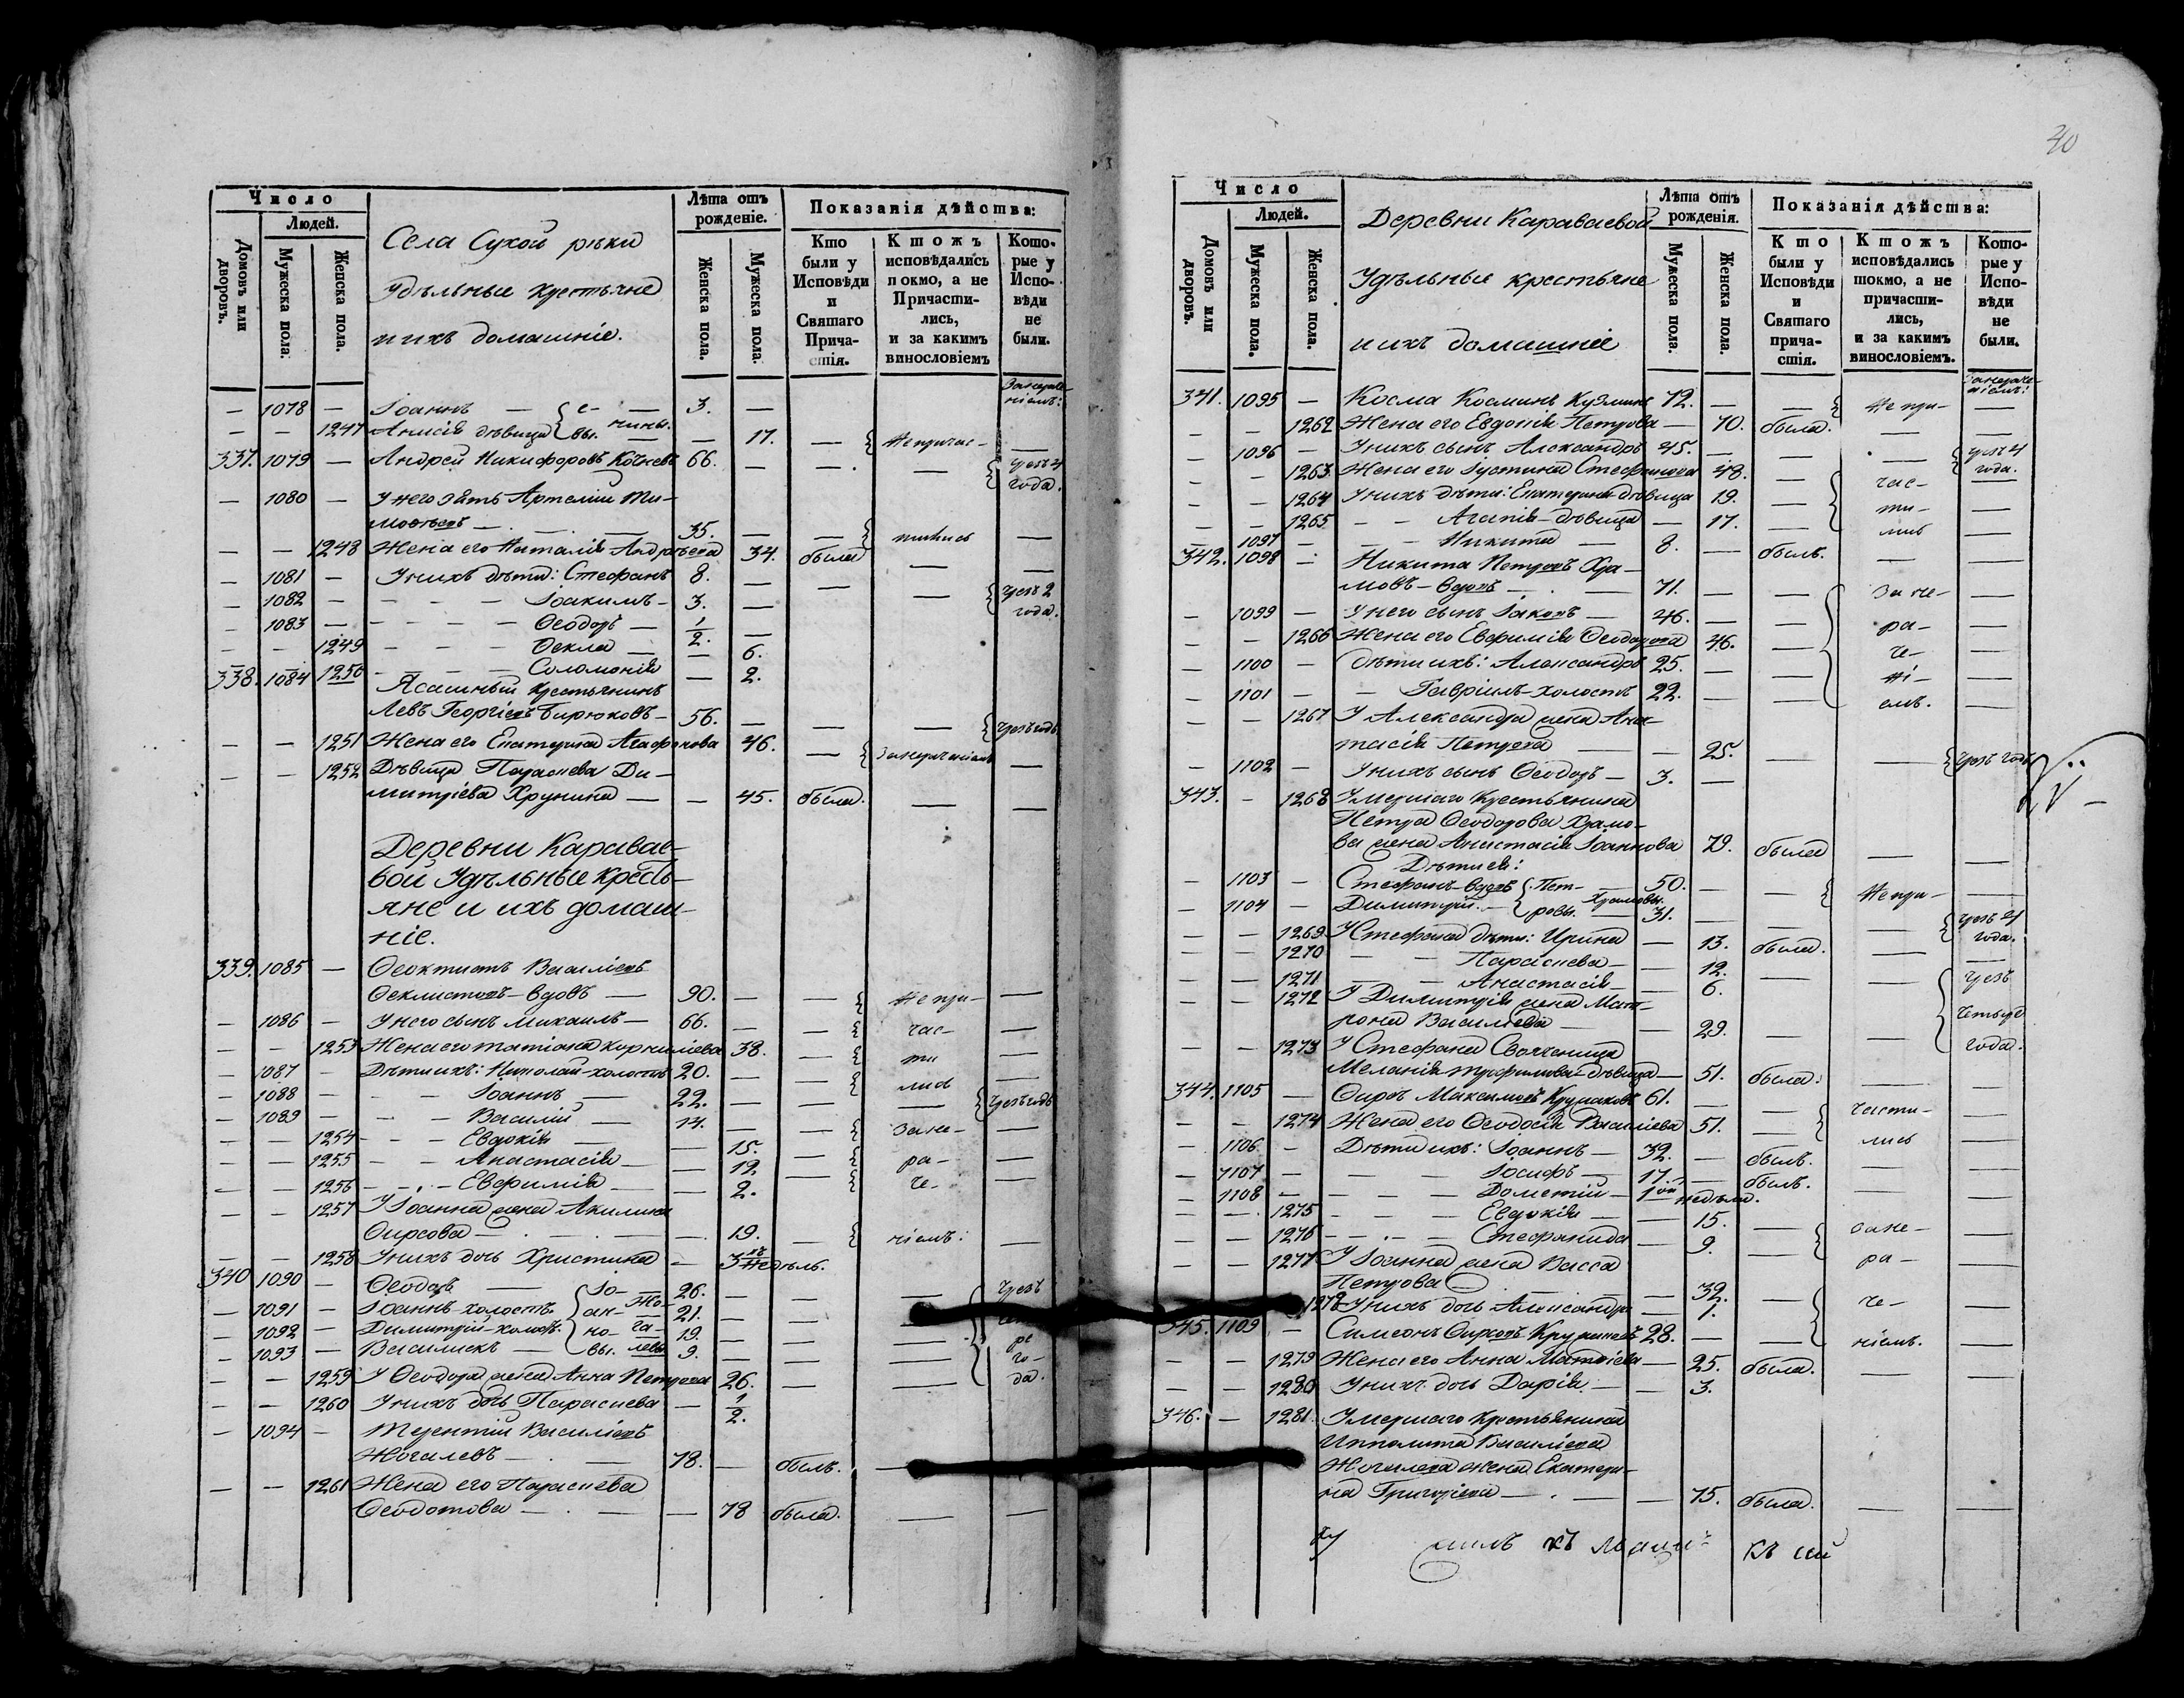 40
Число
Людей.
Домовъ или дворовъ.
Мужеска пола.
Женска пола.
Села Сухой рѣки
Удѣльные крестьяне
и ихъ домашніе.
Лѣта отъ рожденіе.
Женска пола.
Мужеска пола.
Показанія дѣйства:
Кто были у Исповѣди и Святаго Причастія.
Ктожъ исповѣдались покмо, а не Причастились, и за какимъ винословіемъ
Которые у Исповѣди не были.
— 1078 — Іоаннъ — 3. —
— — 1247 Анисія дѣвица — 17. — Непричас— —
337. 1079 — Андрей Никифоровъ Кочневъ 66. — — — чрезъ 4 года.
— 1080 — У него зять Артемій Ти—
моѳеевъ — 35. — — тилась —
— — 1248 Жена его Наталія Андреева 34. была — —
— 1081 — У нихъ дѣти: Стефанъ 8. — — чрезъ 2 года.
— 1082 — — Іоакимъ — 3. —
— 1083 — — Ѳеодоръ — 1/2. —
— — 1249 — Ѳекла — — 6.
— — 1250 — Соломонія — 2.
338. 1084 — Ясашный крестьянинъ
Левъ Георгіевъ Бирюковъ — 56. — — — чрезъ годъ
— — 1251 Жена его Екатерина Агафонова 46. — Занераченіемъ —
— — 1252 Дѣвица Параскева Ди—
митріева Хрунина — — 45. была. — —
Деревни Каравае—
вой Удѣльные кресть—
яне и ихъ домаш—
ніе.
339. 1085 — Ѳеоктистъ Васильевъ
Ѳеклистовъ — вдовъ — 90. — — Непри— —
— 1086 — У него сынъ Михаилъ — 66. — — час— —
— — 1253 Жена его Татіана Корниліева 38. — ти —
— 1087 — Дѣти ихъ: Николай — холостъ 20. — — лись —
— 1088 — — Іоаннъ — 22. — — — чрезъ годъ
— 1089 — — Василій — 14. — — Зане— —
— — 1254 — Евдокія — — 15. — ра— —
— — 1255 — Анастасія — — 12. — че— —
— — 1256 — Евфимія — — 2.
— — 1257 У Іоанна жена Акилина
Ѳирсова — 19. — ніемъ: —
— — 1258 У нихъ дочь Христина — 3хъ недѣль.
340 1090 — Ѳеодоръ — Іо— 26. — — — Чрезъ
— 1091 — Іоаннъ — холостъ. ан— Жо— 21. — — —
— 1092 — Димитрій — холостъ. но— га— 19. — — — ре
— 1093 — Василискъ — вы. левы 9. — — — го—
— — 1259 У Ѳеодора жена Анна Петрова 26. — — да.
— — 1260 У нихъ дочь Параскева — 1/2.
— 1094 — Терентій Васильевъ
Жогалевъ — 78. — былъ. —
— — 1261 Жена его Параскева
Ѳеодотова — — 78 была. — —
Число
Людей.
Домовъ или дворовъ.
Мужеска пола.
Женска пола.
Деревни Караваевой
Удѣльные крестьяне
и ихъ домашніе
Лѣта отъ рожденія.
Мужеска пола.
Женска пола.
Показанія дѣйства:
Кто были у Исповѣди и Святаго причастія.
Ктожъ исповѣдались токмо, а не причастились, и за какимъ винословіемъ.
Которые у Исповѣди не были.
341. 1095 — Косма Косминъ Кузминъ 72. — — Непри— —
— — 1262 Жена его Евдокія Петрова — 70. была. — —
— 1096 — У нихъ сынъ Александръ 45. — — — чрезъ 4 года.
— — 1263 Жена его Іустина Стефанова 48. — час— —
— — 1264 У нихъ дѣти: Екатерина дѣвица 19. — ти— —
— — 1265 — Агапія — дѣвица — 17. — лись —
— 1097 — — Никита — 8. — былъ. —
342. 1098 — Никита Петровъ Хра—
мовъ — вдовъ — 71. — — За не— —
— 1099 — У него сынъ Іаковъ — 46. — — ра— —
— 1266 Жена его Евфимія Ѳеодорова 46. — че— —
— 1100 — Дѣти ихъ: Александръ 25. — — ні— —
— 1101 — — Гавріилъ — холостъ 22. — — емъ. —
— — 1267 У Александра жена Анас—
тасія Петрова — — 25. — — чрезъ годъ
— 1102 — У нихъ сынъ Ѳеодоръ — 3. —
343. — 1268 Умершаго крестьянина
Петра Ѳеодорова Храмо—
ва жена Анастасія Іоаннова 79. была — —
Дѣти ея:
— 1103 — Стефанъ — вдовъ Пет— 50. — — Непри— —
— 1104 — Димитрій — ровы. Храмовы. 31. — — — чрезъ 4 года.
— — 1269 У Стефана дѣти: Ирина — 13. была. — —
— — 1270 — Параскева — — 12. — — чрезъ
— — 1271 — Анастасія — — 6.
— — 1272 У Димитрія жена Мат— четыре
рона Васильева — — 29. — — года.
— — 1273 У Стефана Свояченица
Меланія Трофимова дѣвица — 51. была. — —
344. 1105 — Ѳирсъ Максимовъ 61. — — части— —
— — 1274 Жена его Ѳеодосія Васильева 51. — лись —
— 1106 — Дѣти ихъ: Іоаннъ — 32. — былъ. — —
— 1107 — — Іосифъ — 17. — былъ. — —
— 1108 — — Дометій — недѣли.
— — 1275 — Евдокія — — 15. — зане— —
— — 1276 — Стефанида — 9. — ра— —
— — 1277 У Іоанна жена Васса
Петрова — — 32. — че— —
1278 У нихъ дочь Александра — 1.
345. 1109 — Симеонъ Ѳирсовъ 28. — — ніемъ. —
— — 1279 Жена его Анна Матвіева — 25. была. — —
— — 1280 У нихъ дочь Дарія — — 3.
346. — 1281 Умершаго крестьянина
Ипполита Васильева
Жогалева жена Екатери—
на Григоріева — — 75. была. — —